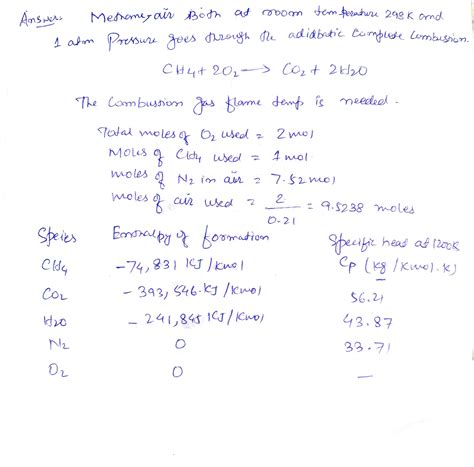 Answer. Methane, air Both at room temperature 298 K and
1 atm Pressure goes through the adiabatic Complete Combustion.
CH4 + 2O2 → CO2 + 2H2O
The Combustion gas flame temp is needed.
Total moles of O2 used = 2 mol
Moles of CH4 used = 1 mol
moles of N2 in air = 7.52 mol
moles of air used = 2/0.21 = 9.5238 moles
Species Enthalpy of formation Specific heat at 1200K
Cp (kg/kmol.K)
CH4 -74,831 KJ/Kmol
CO2 -393,546 KJ/Kmol 56.21
H2O -241,845 KJ/Kmol 43.87
N2 0 33.71
O2 0 —